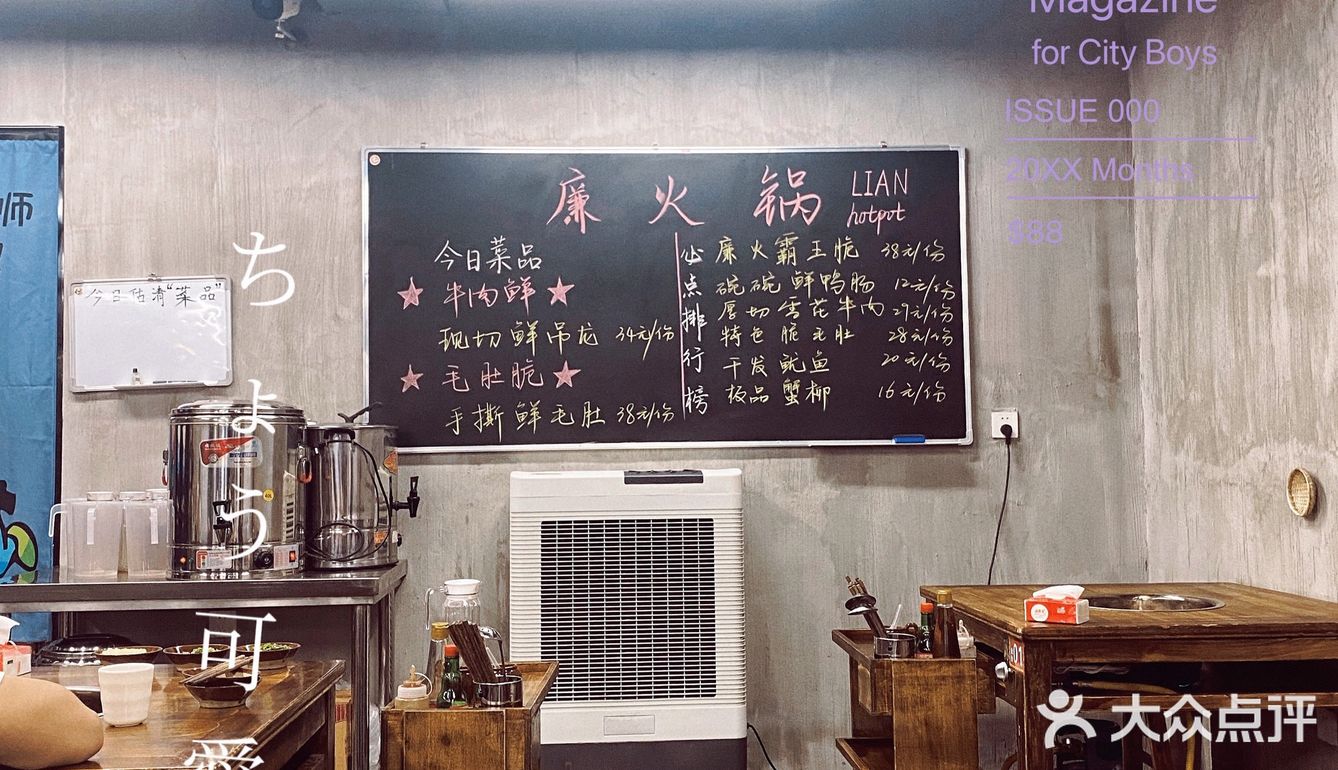 Magazine
for City Boys
ISSUE 000
20XX Months
$88
师
廉火锅
LIAN
hotpot
今日菜品
★牛肉鲜★
现切鲜吊龙 34元/份
★毛肚脆★
手撕鲜毛肚 38元/份
必点排行榜
廉火霸王脆 38元/份
碗碗鲜鸭肠 12元/份
厚切雪花牛肉 29元/份
特色脆毛肚 28元/份
干发鱿鱼 20元/份
极品蟹柳 16元/份
今日估清"菜品"
ちょう可愛
01
大众点评